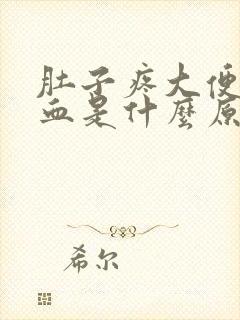 肚子疼大便
血是什麼原
希尔